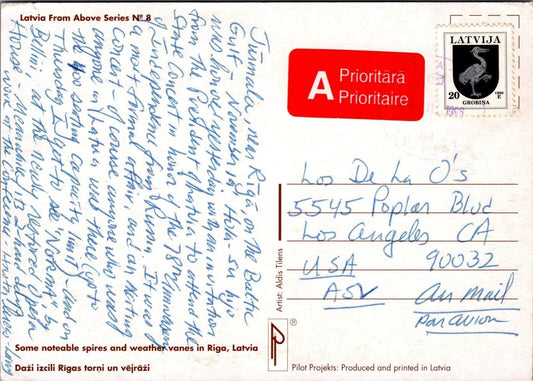 Latvia From Above Series Nº 8
Jūrmala, near Rīgā, on the Baltic
Gulf, November 18th. Hola - su hijo
was here yesterday, with an invitation
from the President of Latvia to attend the
Great Concert in honor of the 78th Anniversary
of Independence from Russia. It was
a most formal affair, and an exciting
Concert. Of course anyone who was
anyone in Latvia was there
the 400 seating capacity limit) - and on
Thursday I got to see "Norma" by
Bellini at the newly restored Opera
House -
work in the - Hasta luego Larry
Some noteable spires and weather vanes in Riga, Latvia
Daži izcili Rīgas torņi un vējrāži
A Prioritārā
Prioritaire
LATVIJA
20
1996
E
GROBIŅA
Los De La O's
5545 Poplar Blvd
Los Angeles CA
USA 90032
ASV Air Mail
Par avion
Artist: Aldis Tilens
®
Pilot Projekts: Produced and printed in Latvia